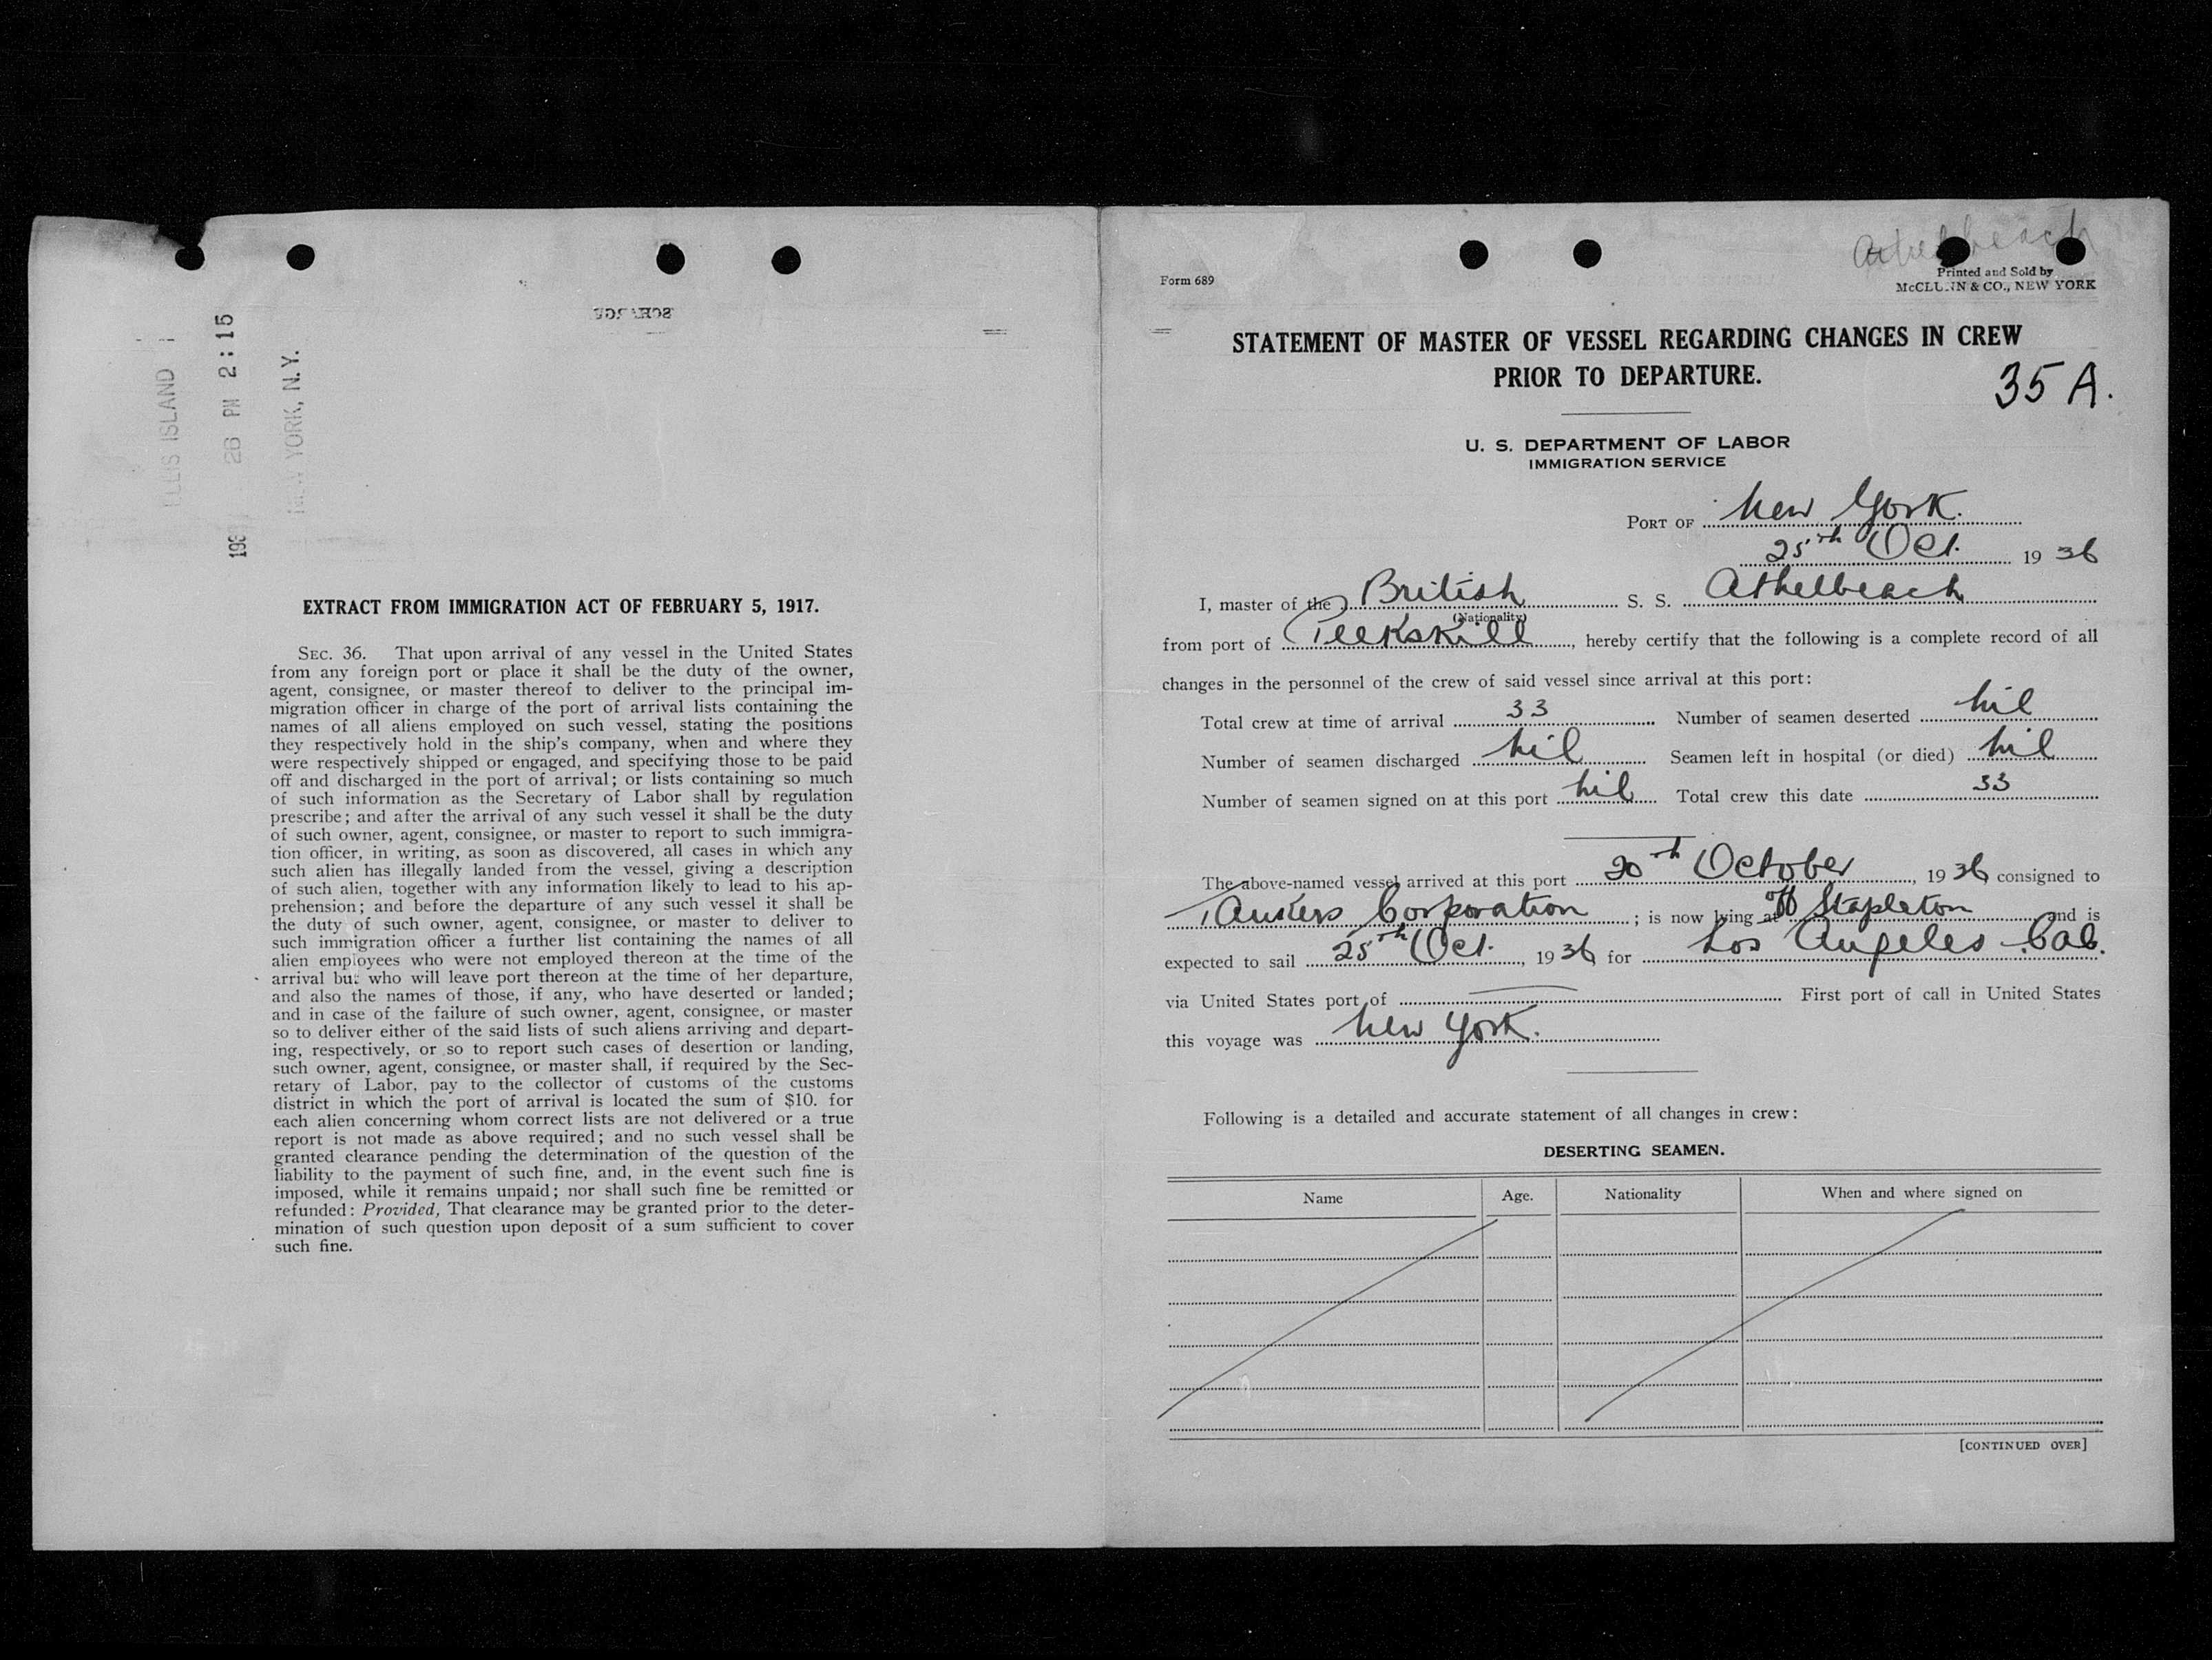 ELLIS ISLAND
193 26 PM 2:15
NEW YORK, N.Y.
EXTRACT FROM IMMIGRATION ACT OF FEBRUARY 5, 1917.
SEC. 36. That upon arrival of any vessel in the United States
from any foreign port or place it shall be the duty of the owner,
agent, consignee, or master thereof to deliver to the principal im-
migration officer in charge of the port of arrival lists containing the
names of all aliens employed on such vessel, stating the positions
they respectively hold in the ship's company, when and where they
were respectively shipped or engaged, and specifying those to be paid
off and discharged in the port of arrival; or lists containing so much
of such information as the Secretary of Labor shall by regulation
prescribe; and after the arrival of any such vessel it shall be the duty
of such owner, agent, consignee, or master to report to such immigra-
tion officer, in writing, as soon as discovered, all cases in which any
such alien has illegally landed from the vessel, giving a description
of such alien, together with any information likely to lead to his ap-
prehension; and before the departure of any such vessel it shall be
the duty of such owner, agent, consignee, or master to deliver to
such immigration officer a further list containing the names of all
alien employees who were not employed thereon at the time of the
arrival but who will leave port thereon at the time of her departure,
and also the names of those, if any, who have deserted or landed;
and in case of the failure of such owner, agent, consignee, or master
so to deliver either of the said lists of such aliens arriving and depart-
ing, respectively, or so to report such cases of desertion or landing,
such owner, agent, consignee, or master shall, if required by the Sec-
retary of Labor, pay to the collector of customs of the customs
district in which the port of arrival is located the sum of $10. for
each alien concerning whom correct lists are not delivered or a true
report is not made as above required; and no such vessel shall be
granted clearance pending the determination of the question of the
liability to the payment of such fine, and, in the event such fine is
imposed, while it remains unpaid; nor shall such fine be remitted or
refunded: Provided, That clearance may be granted prior to the deter-
mination of such question upon deposit of a sum sufficient to cover
such fine.
Athelbeach
Form 689
Printed and Sold by
McCLUNN & CO., NEW YORK
STATEMENT OF MASTER OF VESSEL REGARDING CHANGES IN CREW
PRIOR TO DEPARTURE.
35 A.
U. S. DEPARTMENT OF LABOR
IMMIGRATION SERVICE
PORT OF New York.
25th Oct. 1936
I, master of the British S. S. Athelbeach
(Nationality)
from port of Peekskill, hereby certify that the following is a complete record of all
changes in the personnel of the crew of said vessel since arrival at this port:
Total crew at time of arrival 33 Number of seamen deserted nil
Number of seamen discharged nil Seamen left in hospital (or died) nil
Number of seamen signed on at this port nil Total crew this date 33
The above-named vessel arrived at this port 20th October, 1936, consigned to
Tankers Corporation; is now lying at off Stapleton and is
expected to sail 25th Oct., 1936, for Los Angeles Cal.
via United States port of — First port of call in United States
this voyage was New York.
Following is a detailed and accurate statement of all changes in crew:
DESERTING SEAMEN.
Name Age. Nationality When and where signed on
[CONTINUED OVER]